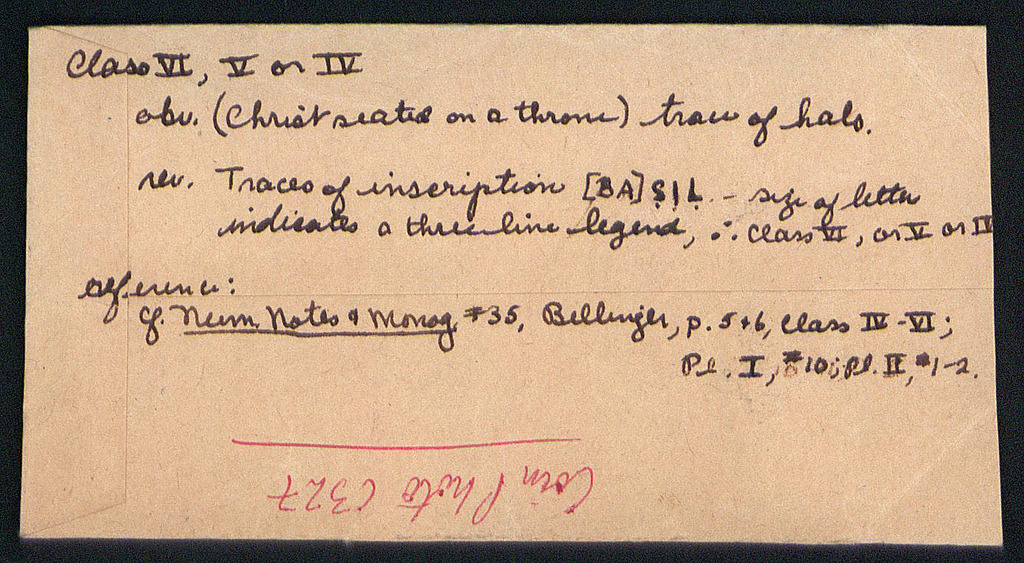 Class VI, V or IV
obv. (Christ seated on a throne) trace of halo.
rev. Traces of inscription [BA]SIL - size of letter
indicates a three-line legend, ∴ Class VI, or V or IV
reference:
cf. Num. Notes & Monog. #35, Bellinger, p. 5+6, Class IV-VI;
Pl. I, #10; Pl. II, #1-2.
Coin Photo C327